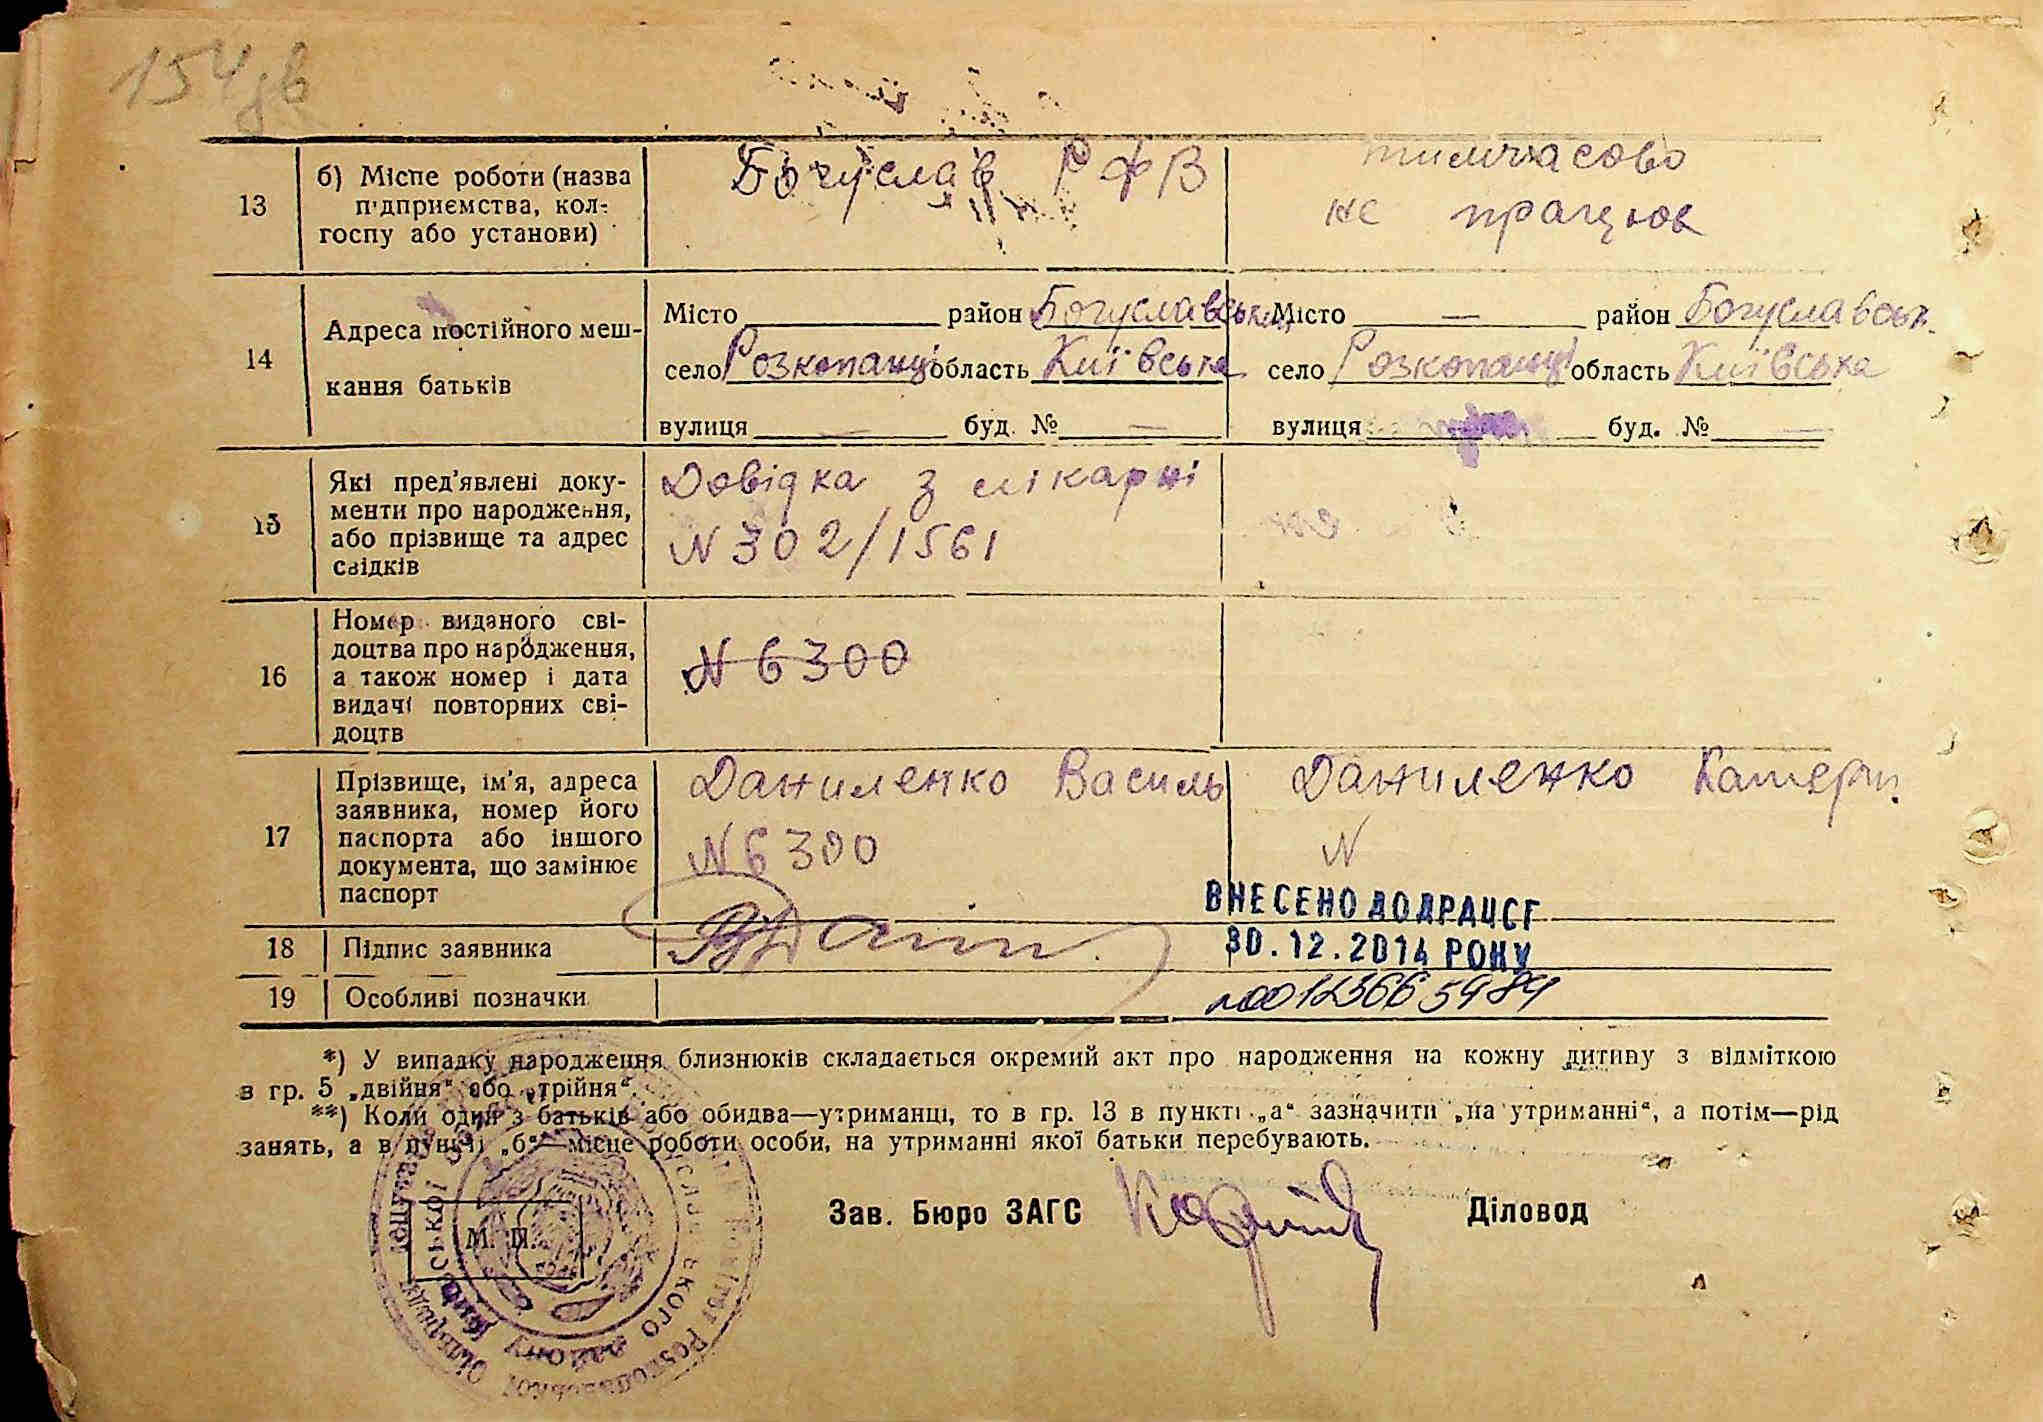 154 зв
13
б) Місце роботи (назва
підприємства, кол-
госпу або установи)
Богуслав РФВ
тимчасово
не працює
14
Адреса постійного меш-
кання батьків
Місто район Богуславськ.
село Розкопанці область Київська
вулиця — буд. № —
Місто — район Богуславськ.
село Розкопанці область Київська
вулиця буд. № —
15
Які пред'явлені доку-
менти про народження,
або прізвище та адрес
свідків
Довідка з лікарні
N 302/1561
16
Номер виданого сві-
доцтва про народження,
а також номер і дата
видачі повторних сві-
доцтв
N 6300
17
Прізвище, ім'я, адреса
заявника, номер його
паспорта або іншого
документа, що замінює
паспорт
Даниленко Василь
N 6300
Даниленко Катери.
N
ВНЕСЕНО ДО ДРАЦСГ
30.12.2014 РОКУ
18
Підпис заявника
19
Особливі позначки
*) У випадку народження близнюків складається окремий акт про народження на кожну дитину з відміткою
в гр. 5 „двійня“ або „трійня“
**) Коли один з батьків або обидва—утриманці, то в гр. 13 в пункті „а“ зазначити „на утриманні“, а потім—рід
занять, а в пункті „б“—місце роботи особи, на утриманні якої батьки перебувають.
М. П.
Зав. Бюро ЗАГС
Діловод